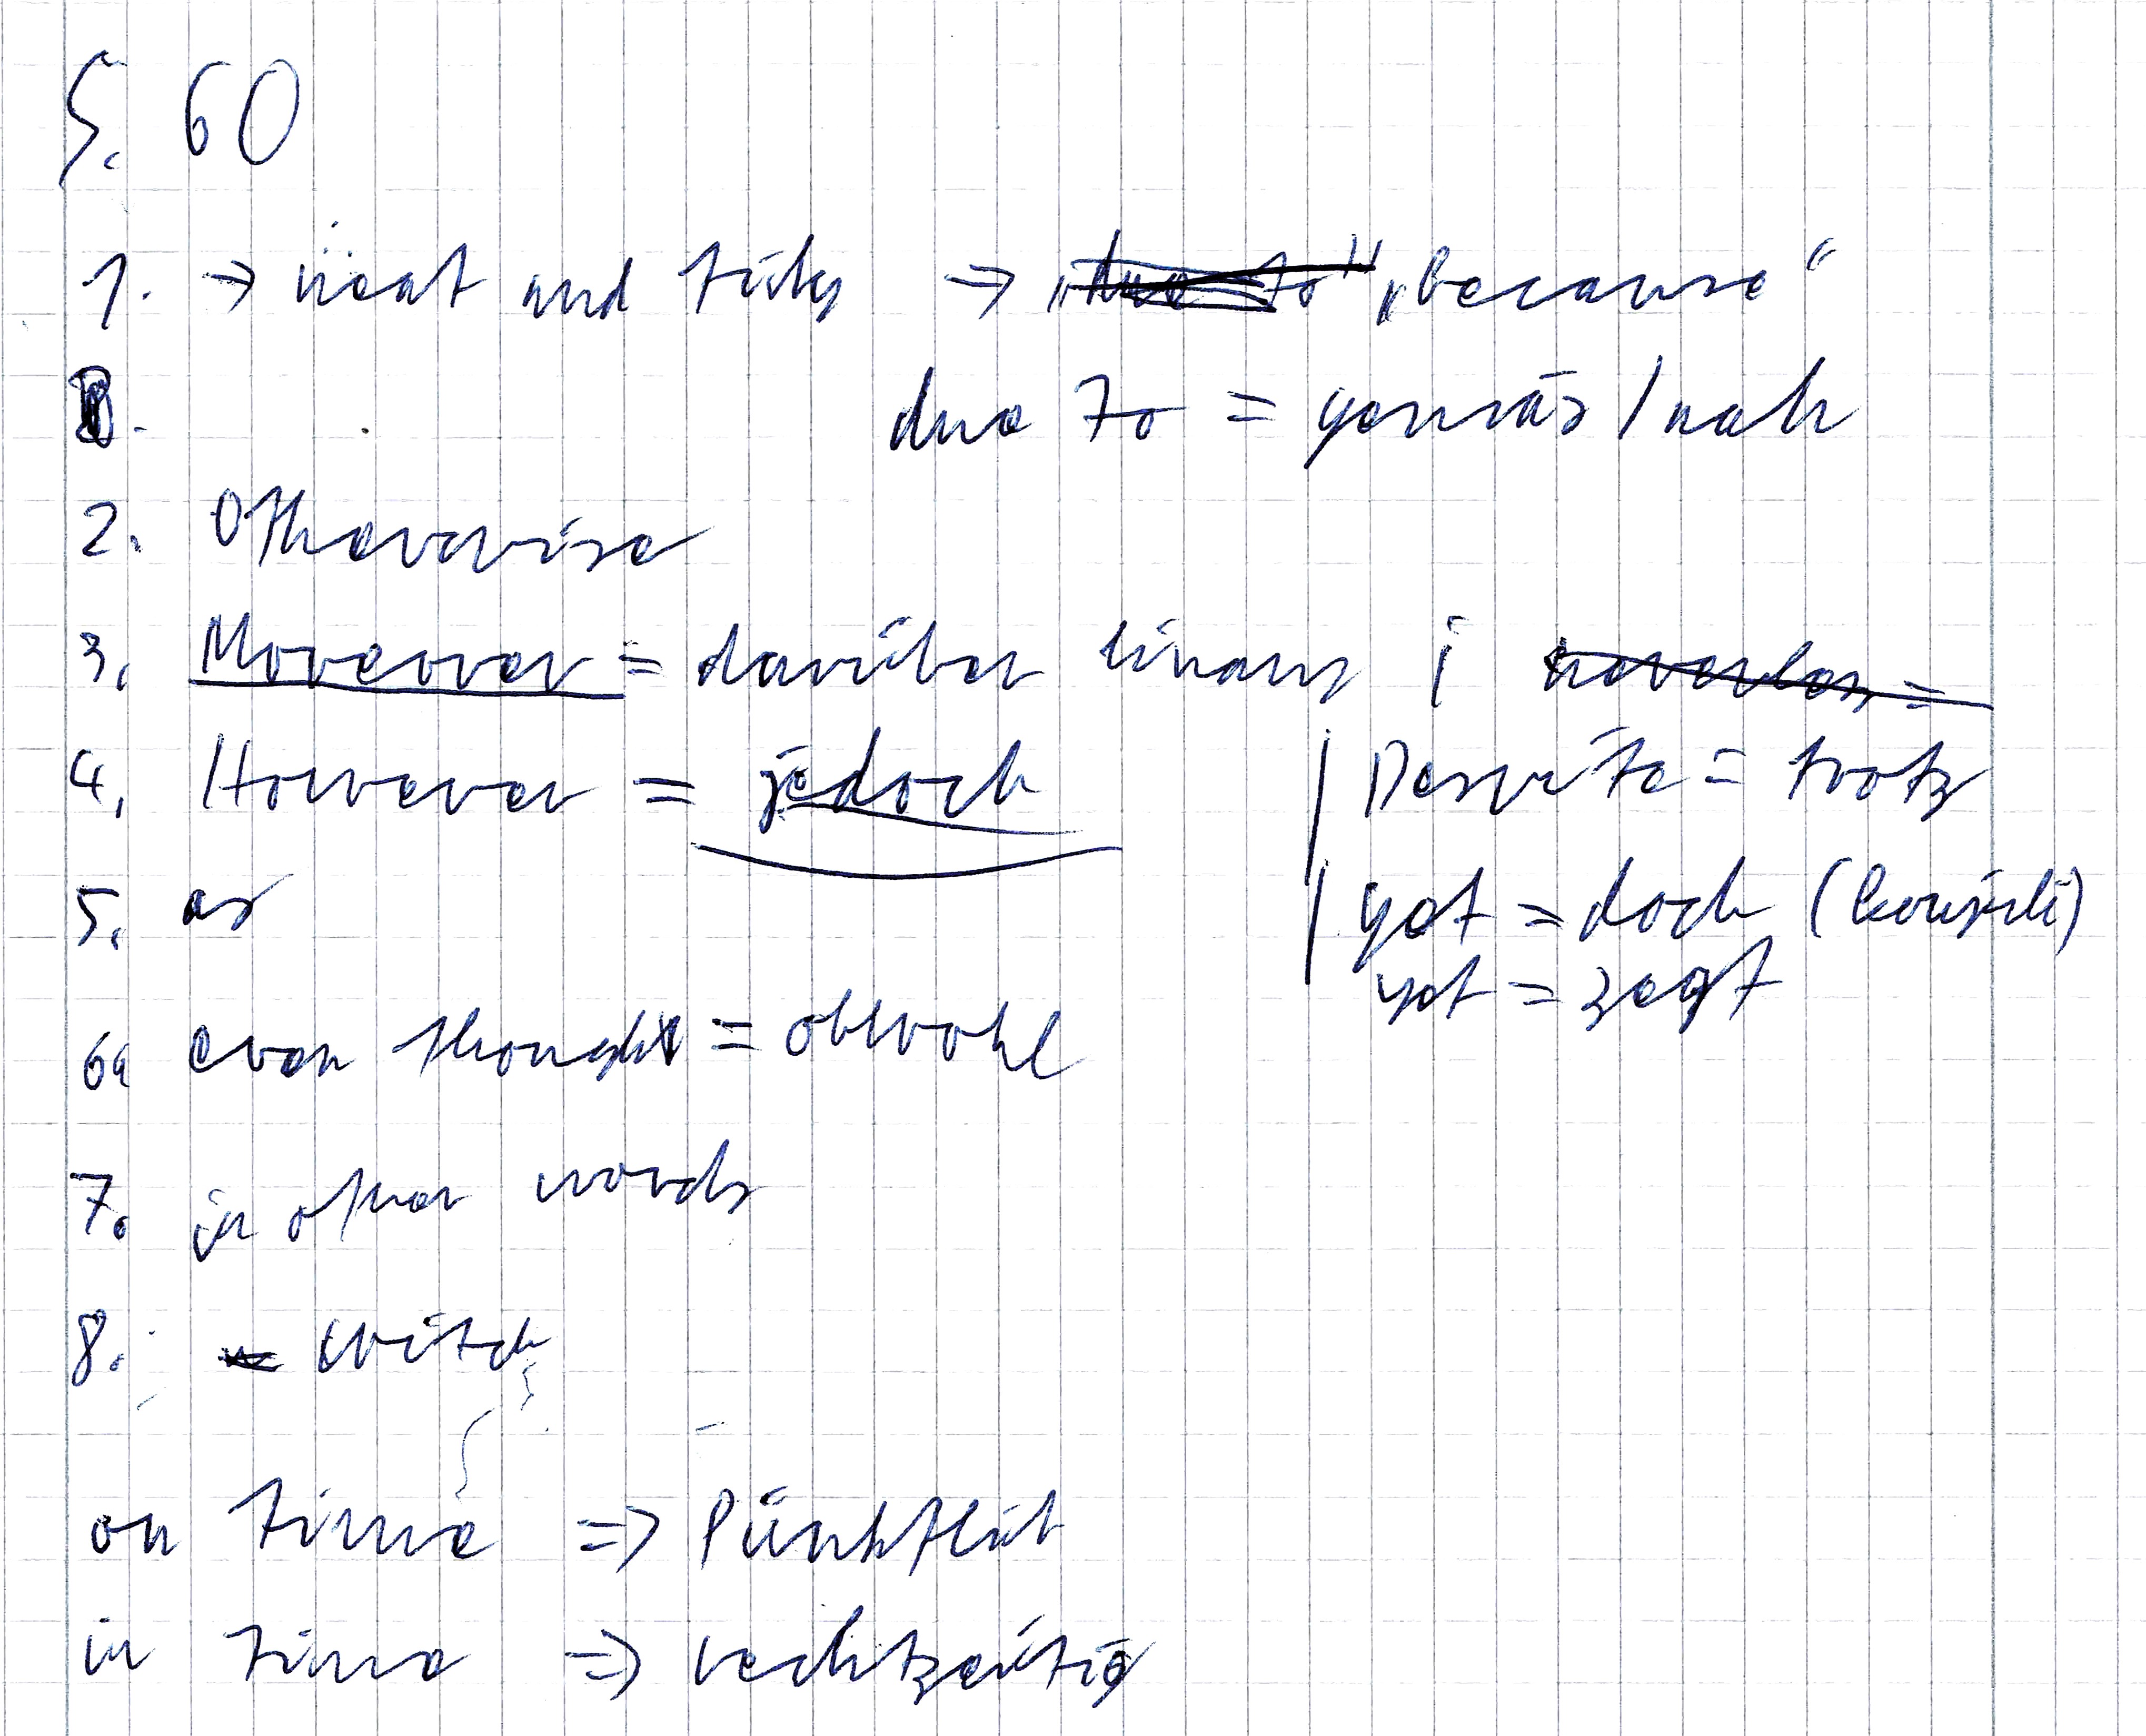 S. 60
1. → neat and tidy → „due to" „because“
B. due to = gemäs / nah
2. Otherwise
3. Moreover = darüber hinaus ;
4. However = jedoch | Despite = trotz
5. as | yet = doch
yet = jetzt
6. even though = obwohl
7. in other words
8. witch
on time => Pünktlich
in time => rechtzeitig